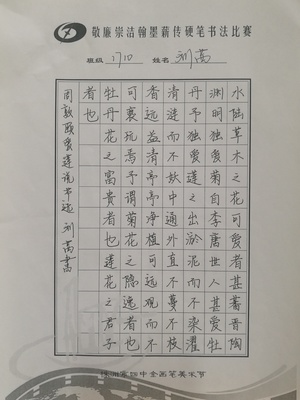 敬廉崇洁翰墨薪传硬笔书法比赛
班级 1710 姓名 刘蒿
水陆草木之花可爱者甚蕃晋陶
渊明独爱菊自李唐世人甚爱牡
丹予独爱莲之出淤泥而不染濯
清涟而不妖中通外直不蔓不枝
香远益清亭亭净植可远观而不
可亵玩焉予谓菊花之隐逸者也
牡丹花之富贵者也莲花之君子
者也
周敦颐爱莲说节选 刘蒿书